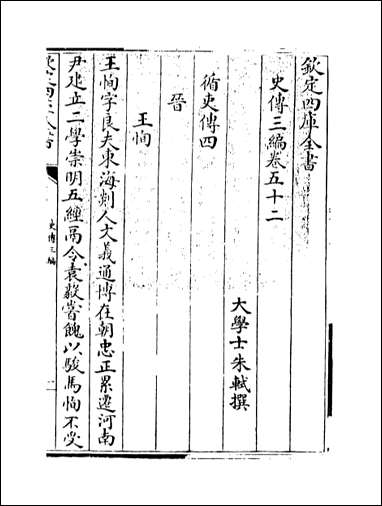 欽定四庫全書
史傳三編卷五十二
大學士朱軾撰
循吏傳四
晉
王恂
王恂字良夫東海剡人文義通博在朝忠正累遷河南
尹建立二學崇明五經鬲令袁毅嘗餽以駿馬恂不受
史傳三編